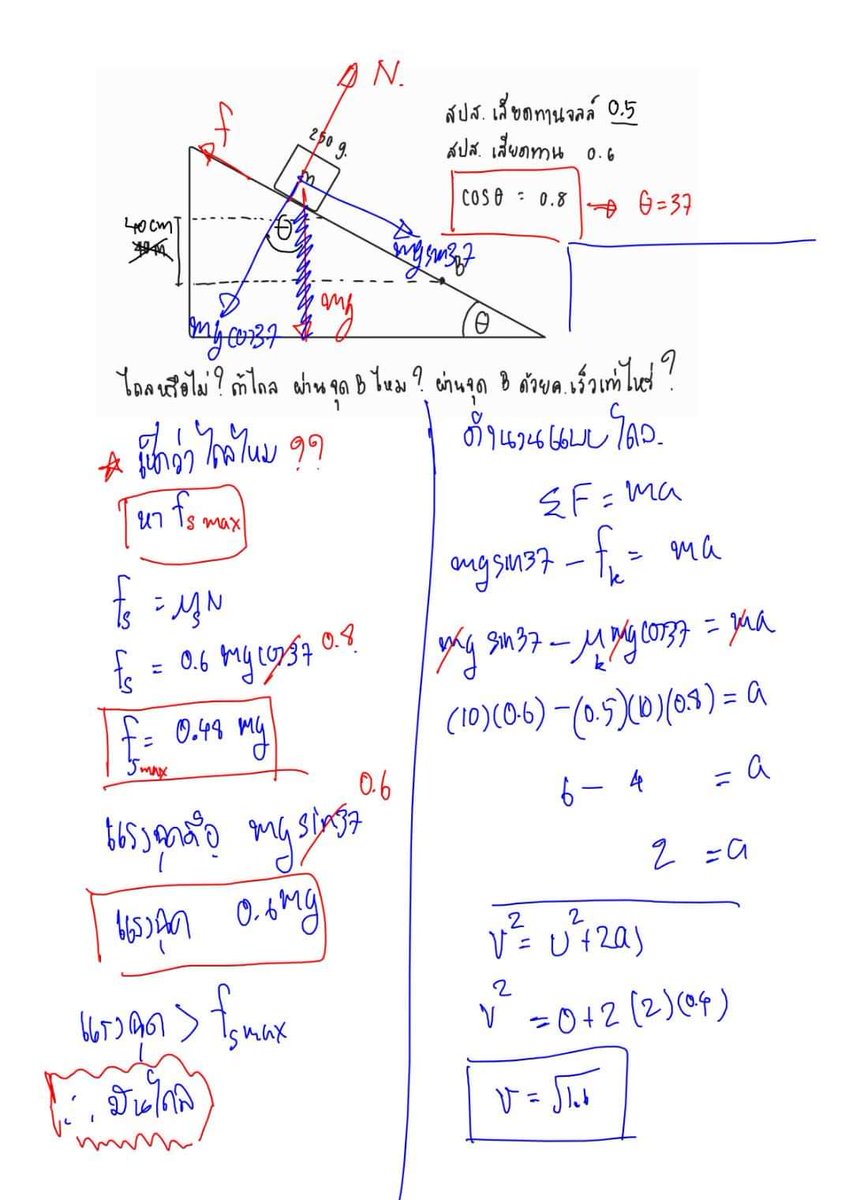 N.
f
250 g.
m
สปส. เสียดทานจลน์ 0.5
สปส. เสียดทาน 0.6
cosθ = 0.8 → θ=37
40cm
θ
mg sin37
B
mg
mg cos37
θ
ไถลหรือไม่? ถ้าไถล ผ่านจุด B ไหม? ผ่านจุด B ด้วยค.เร็วเท่าไหร่?
ไถลไหม ??
หา fs max
fs = μsN
fs = 0.6 mg cos37 0.8
fsmax = 0.48 mg
0.6
แรงฉุดคือ mg sin37
แรงฉุด 0.6mg
แรงฉุด > fsmax
∴ มันไถล
คำนวนแบบไถล.
ΣF = ma
mg sin37 − fk = ma
mg sin37 − μk mg cos37 = ma
(10)(0.6) − (0.5)(10)(0.8) = a
6 − 4 = a
2 = a
v² = u² + 2as
v² = 0 + 2(2)(0.4)
v = √1.6